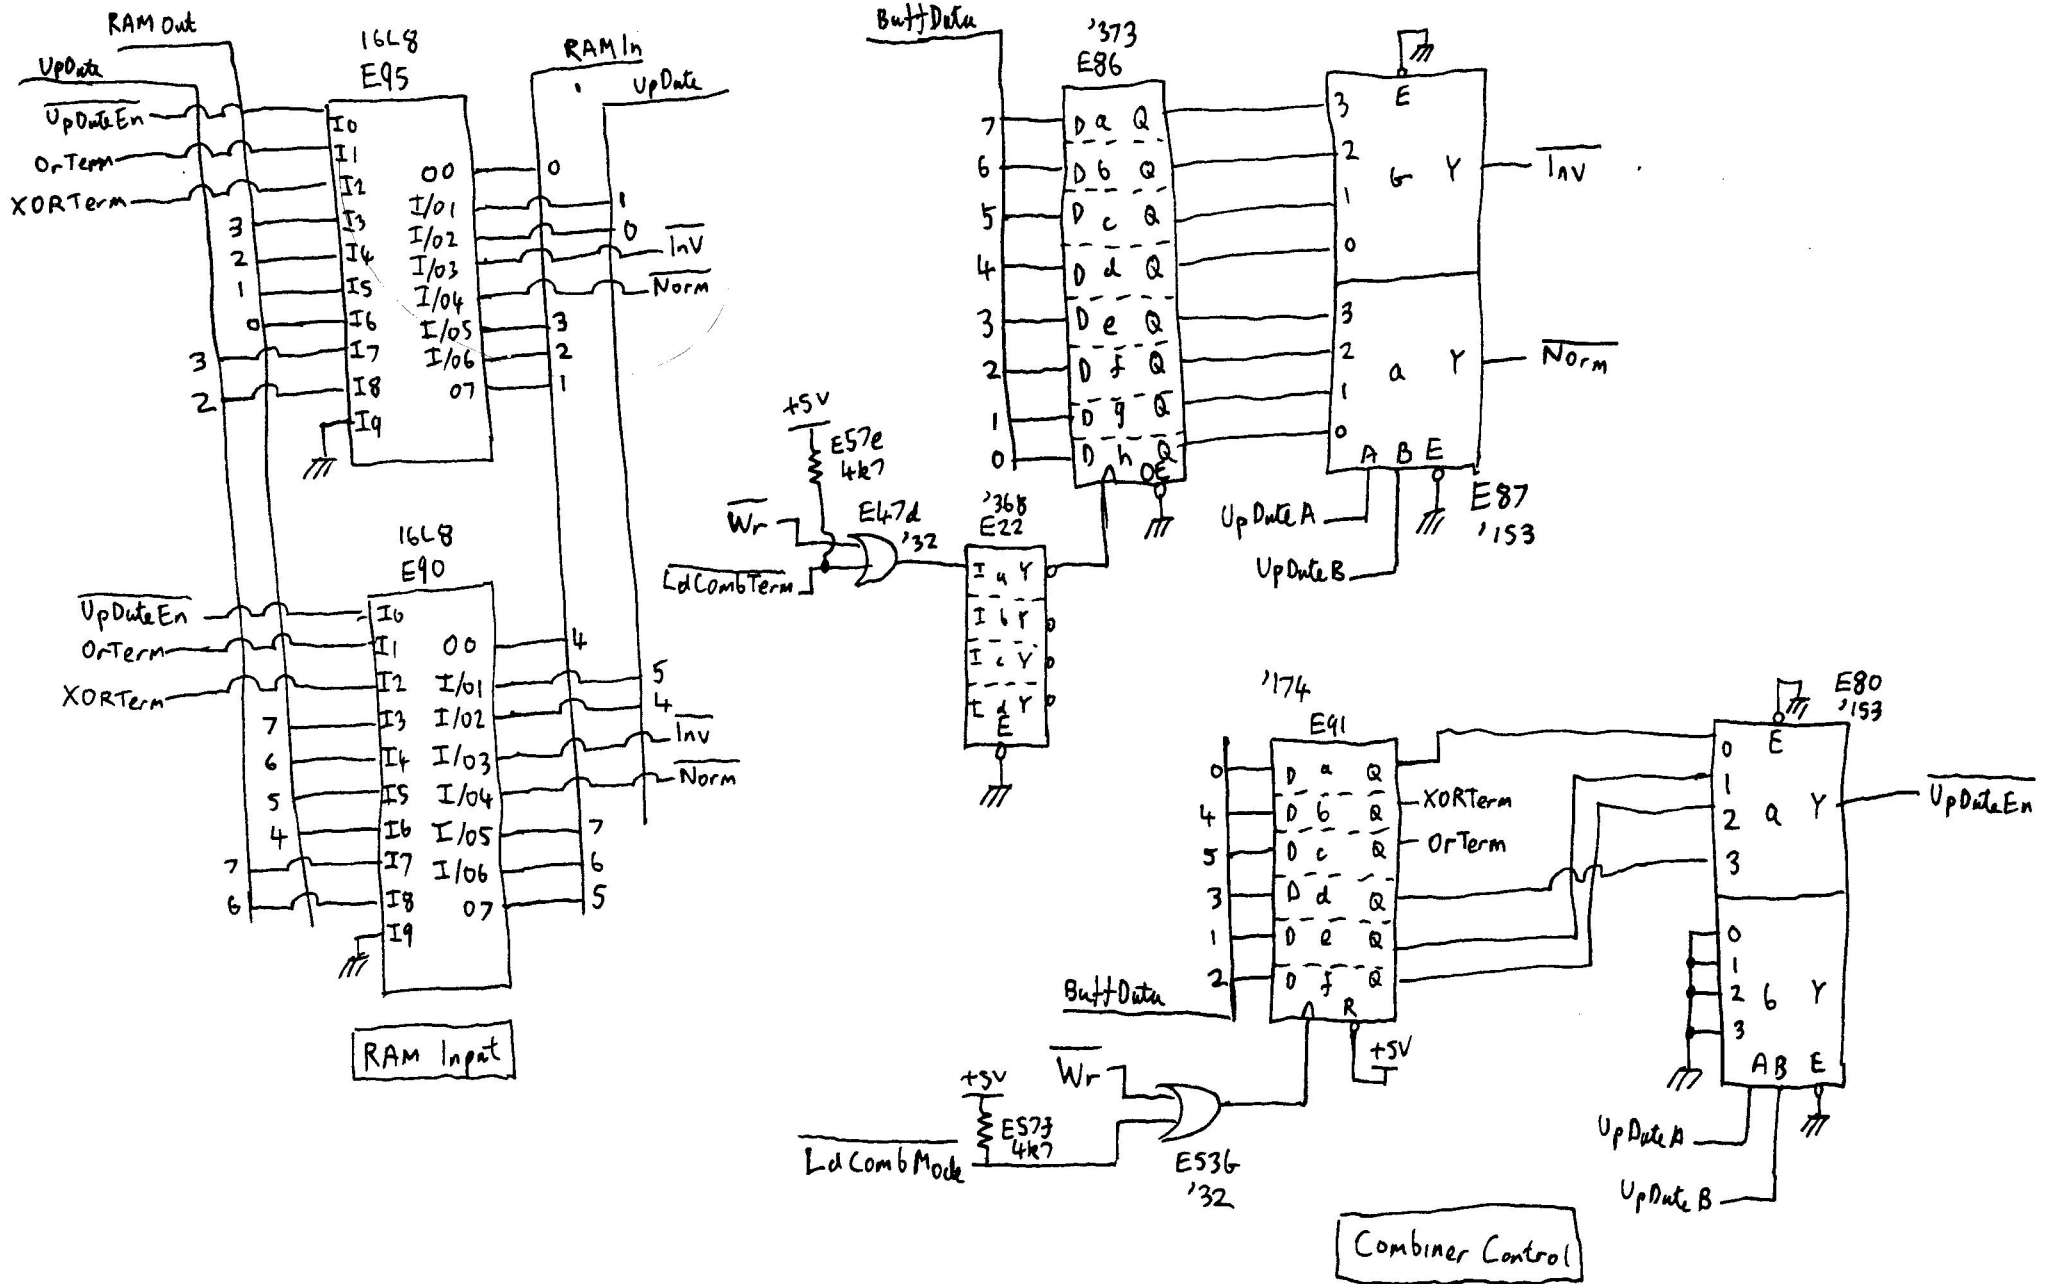 RAM Out
UpDate
16L8
E95
RAM In
UpDate
UpDateEn
OrTerm
XORTerm
3
2
1
0
3
2
I0
I1
I2
I3
I4
I5
I6
I7
I8
I9
O0
I/O1
I/O2
I/O3
I/O4
I/O5
I/O6
O7
0
1
0
Inv
Norm
3
2
1
16L8
E90
UpDateEn
OrTerm
XORTerm
7
6
5
4
7
6
I0
I1
I2
I3
I4
I5
I6
I7
I8
I9
O0
I/O1
I/O2
I/O3
I/O4
I/O5
I/O6
O7
4
5
4
Inv
Norm
7
6
5
RAM Input
BuffData
'373
E86
7
6
5
4
3
2
1
0
D a Q
D b Q
D c Q
D d Q
D e Q
D f Q
D g Q
D h Q
OE
E
3
2
1
0
b Y
Inv
3
2
1
0
a Y
Norm
A B E
E87
'153
UpDateA
UpDateB
+5V
E57e
4k7
Wr
LdCombTerm
E47d
'32
'368
E22
I a Y
I b Y
I c Y
I d Y
E
'174
E91
0
4
5
3
1
2
D a Q
D b Q
D c Q
D d Q
D e Q
D f Q
R
XORTerm
OrTerm
BuffData
+5V
Wr
+5V
E57f
4k7
LdCombMode
E53b
'32
E80
'153
E
0
1
2
3
a Y
UpDateEn
0
1
2
3
b Y
A B E
UpDateA
UpDateB
Combiner Control